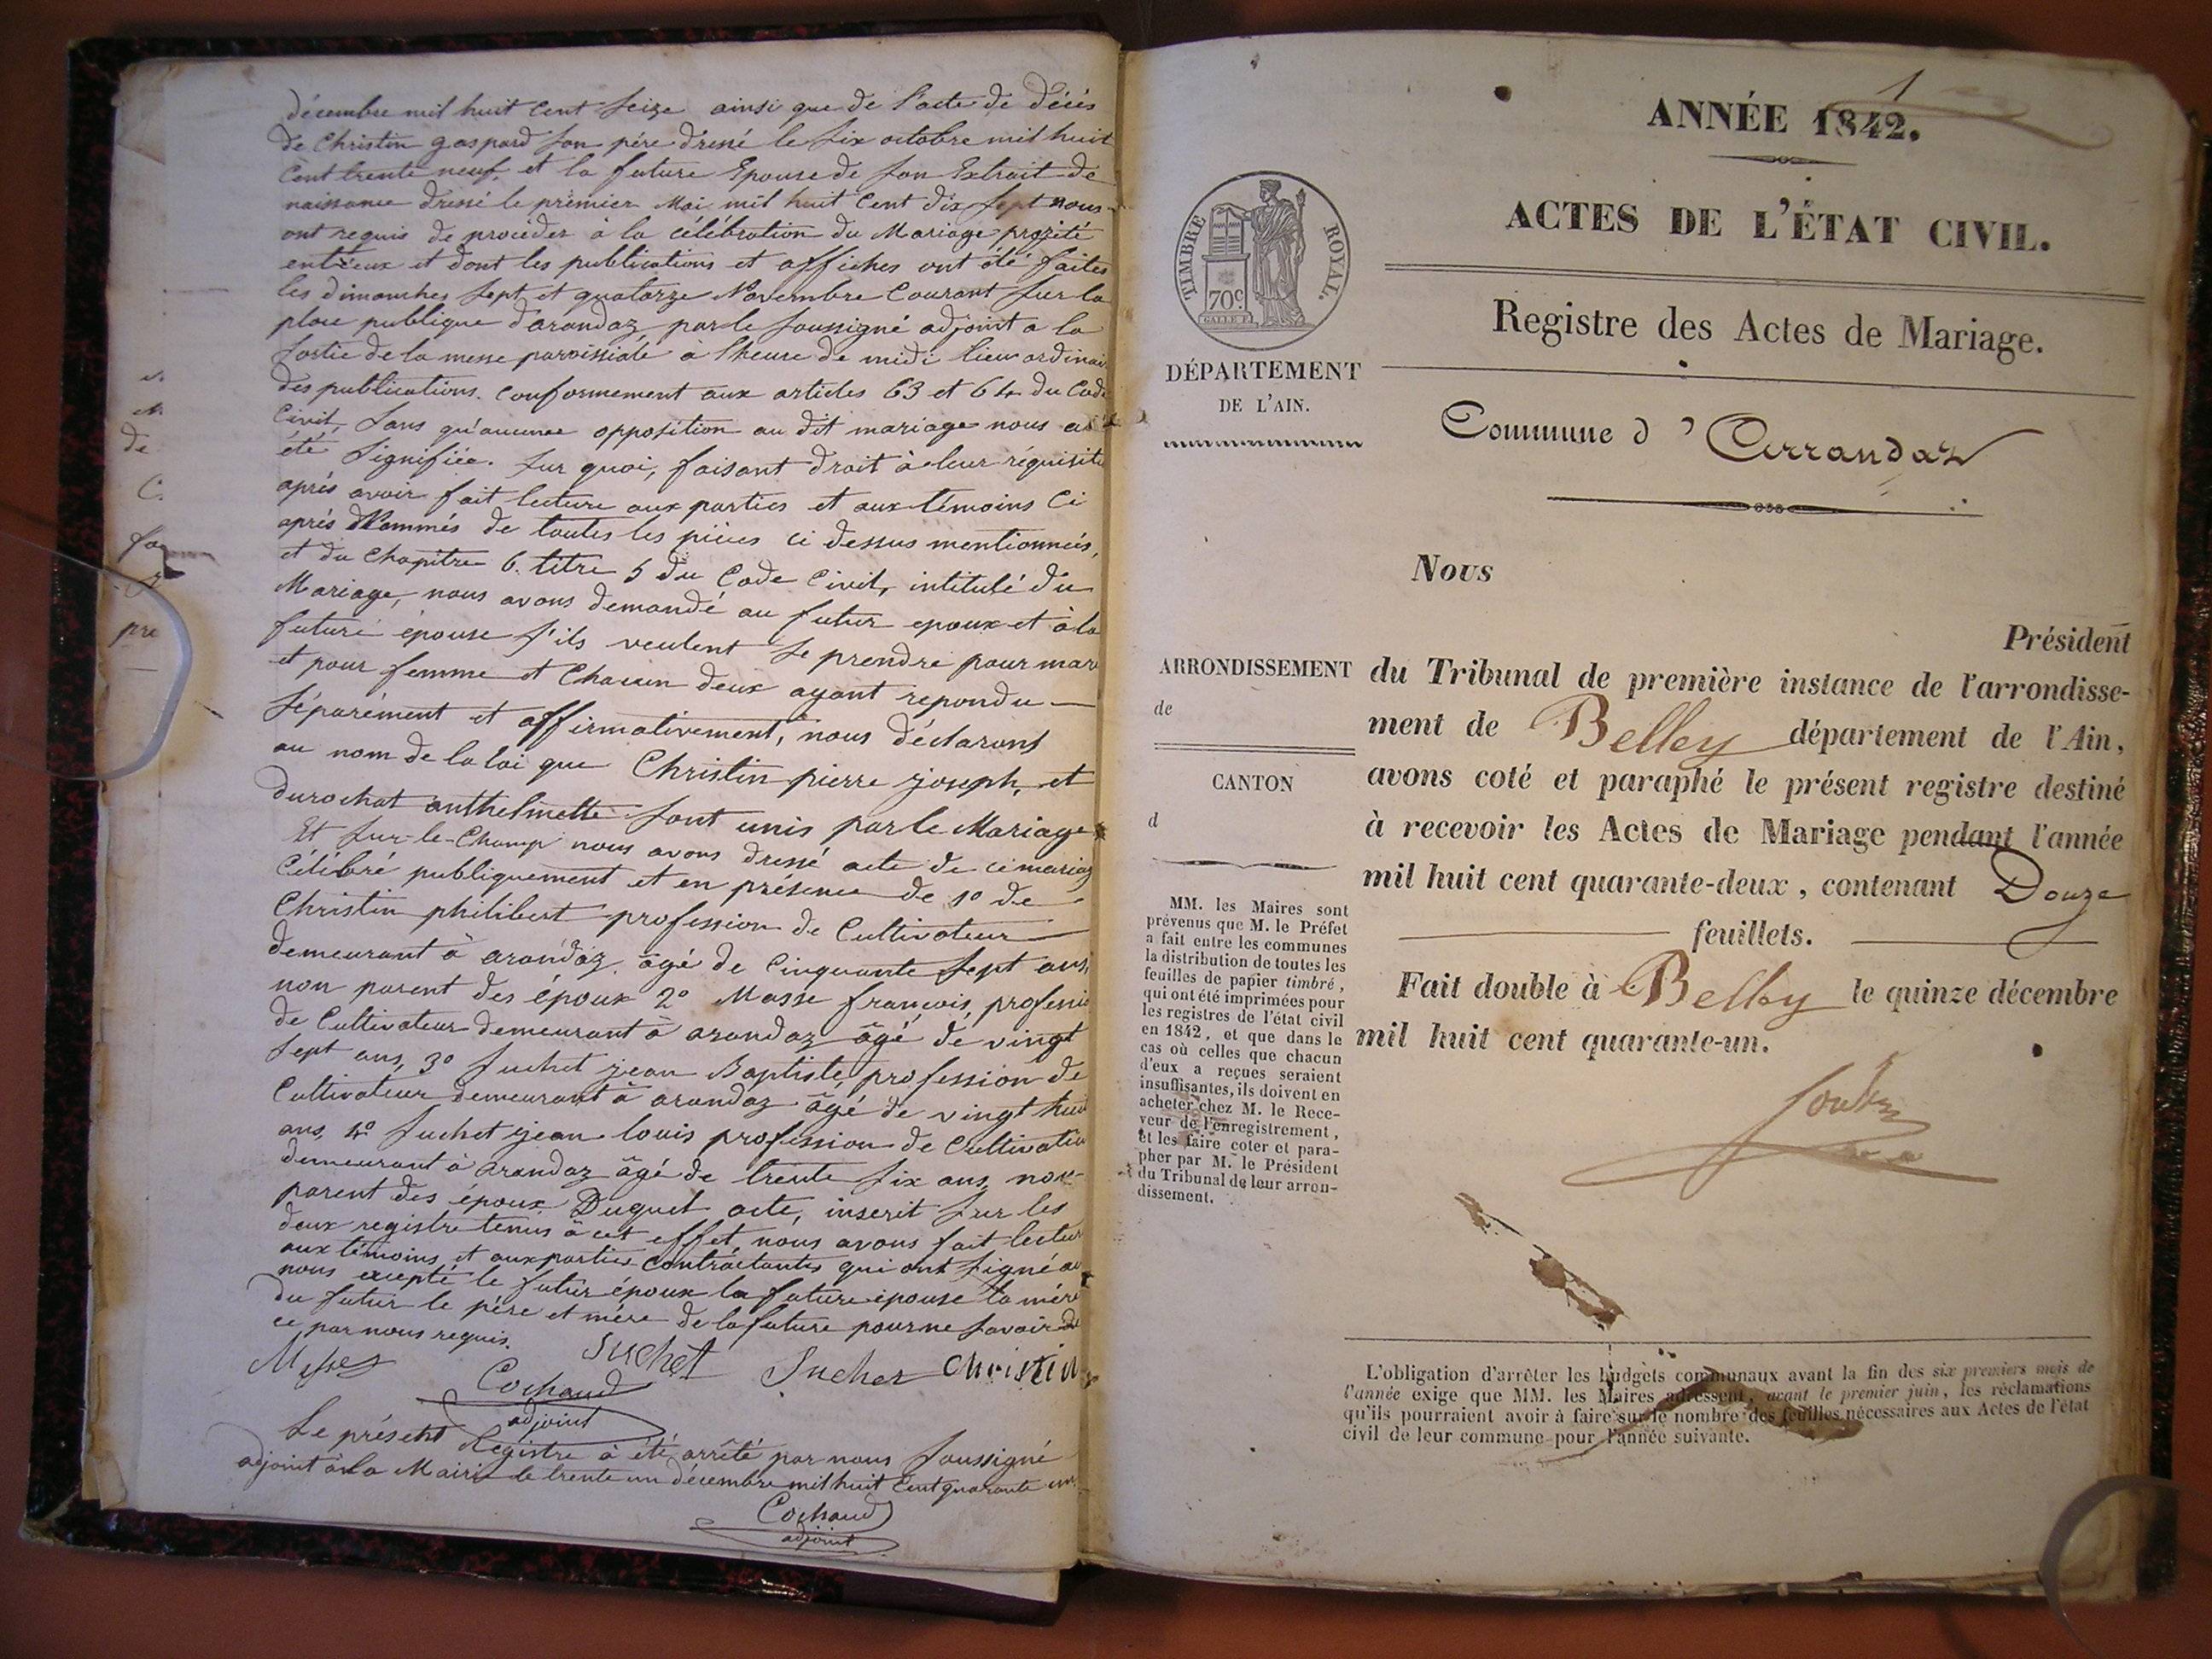 décembre mil huit cent seize ainsi que de l'acte de décès
de Christin gaspard son père dressé le six octobre mil huit
cent trente neuf, et la future Epouse de son Extrait de
naissance dressé le premier Mai mil huit cent dix sept nous
ont requis de procéder à la célébration du Mariage projété
entr'eux et dont les publications et affiches ont été faites
les dimanches sept et quatorze Novembre Courant sur la
place publique d'arandaz, par le soussigné adjoint a la
sortie de la messe paroissiale à l'heure de midi lieu ordinai
des publications. conformement aux articles 63 et 64 du Code
Civil, sans qu'aucune opposition au dit mariage nous ait
été signifiée. sur quoi, faisant droit à leur réquisit
après avoir fait lecture aux parties et aux témoins Ci
après Nommés de toutes les pièces ci dessus mentionnées,
et du Chapitre 6. titre 5 du Code Civil, intitulé du
Mariage, nous avons demandé au futur epoux et à la
future épouse s'ils veulent se prendre pour mari
et pour femme et Chacun deux ayant repondu
séparément et affirmativement, nous déclarons
au nom de la loi que Christin pierre joseph, et
durochat anthelmette sont unis par le Mariage
Et sur-le-Champ nous avons dressé acte de ce mariag
Célébré publiquement et en présence de 1º de
Christin philibert profession de Cultivateur
demeurant à arandaz, âgé de Cinquante sept ans,
non parent des époux 2º Masse françois, professio
de Cultivateur demeurant à arandaz âgé de vingt
sept ans, 3º suchet jean Baptiste, profession de
Cultivateur demeurant à arandaz âgé de vingt huit
ans, 4º suchet jean louis profession de Cultivateu
demeurant à arandaz âgé de trente six ans, non
parent des époux Duquel acte, inscrit sur les
deux registre tenus à cet effet, nous avons fait lectur
aux témoins et aux parties Contractantes qui ont signé av
nous excepté le futur époux la future épouse la mère
du futur le père et mère de la future pour ne savoir de
ce par nous requis.
Suchet Suchet Christin
Cochaud
adjoint
Le présent Registre à été arrêté par nous soussigné
adjoint à la Mairie le trente un décembre mil huit Cent quarante un.
Cochaud
adjoint
1
ANNÉE 1842.
ACTES DE L'ÉTAT CIVIL.
Registre des Actes de Mariage.
TIMBRE ROYAL.
70c.
DÉPARTEMENT
DE L'AIN.
Commune d'Arrandaz
Nous
Président
ARRONDISSEMENT
de
CANTON
d
du Tribunal de première instance de l'arrondisse-
ment de Belley département de l'Ain,
avons coté et paraphé le présent registre destiné
à recevoir les Actes de Mariage pendant l'année
mil huit cent quarante-deux, contenant Douze
feuillets.
Fait double à Belley le quinze décembre
mil huit cent quarante-un.
MM. les Maires sont
prévenus que M. le Préfet
a fait entre les communes
la distribution de toutes les
feuilles de papier timbré,
qui ont été imprimées pour
les registres de l'état civil
en 1842, et que dans le
cas où celles que chacun
d'eux a reçues seraient
insuffisantes, ils doivent en
acheter chez M. le Rece-
veur de l'enregistrement,
et les faire coter et para-
pher par M. le Président
du Tribunal de leur arron-
dissement.
L'obligation d'arrêter les budgets communaux avant la fin des six premiers mois de
l'année exige que MM. les Maires adressent, avant le premier juin, les réclamations
qu'ils pourraient avoir à faire sur le nombre des feuilles nécessaires aux Actes de l'état
civil de leur commune pour l'année suivante.